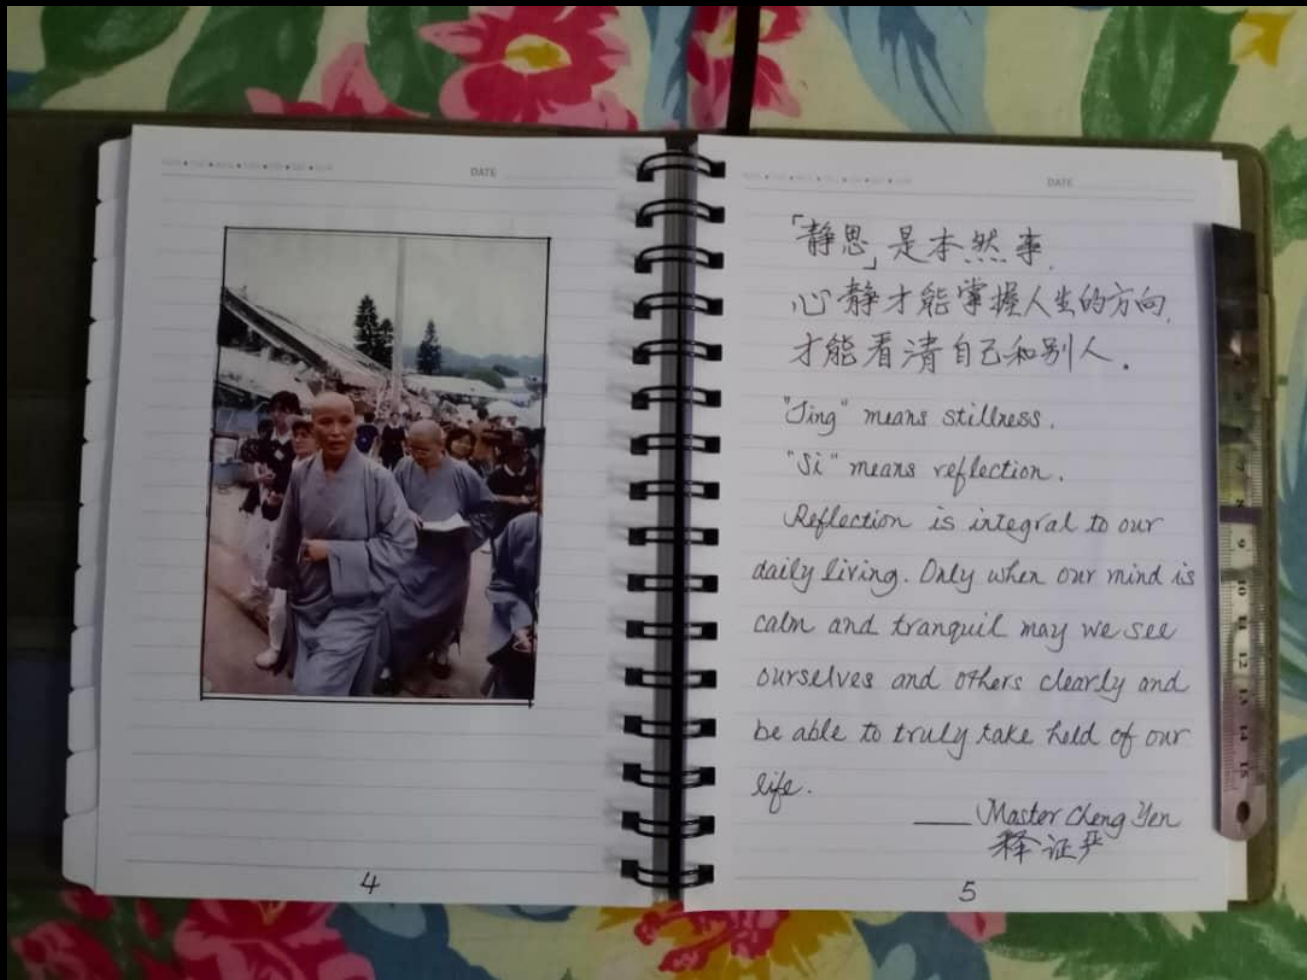 DATE
4
DATE
「静思」是本然事,
心静才能掌握人生的方向,
才能看清自己和别人.
"Jing" means stillness.
"Si" means reflection.
Reflection is integral to our
daily living. Only when our mind is
calm and tranquil may we see
ourselves and others clearly and
be able to truly take hold of our
life.
—— Master Cheng Yen
释证严
5
9
10
11
12
13
14
15